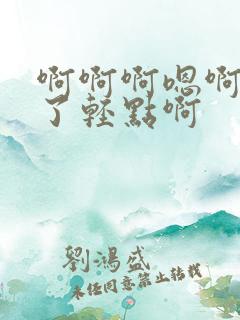 啊啊啊嗯啊
了轻點啊
劉鴻盛
未经同意禁止转载